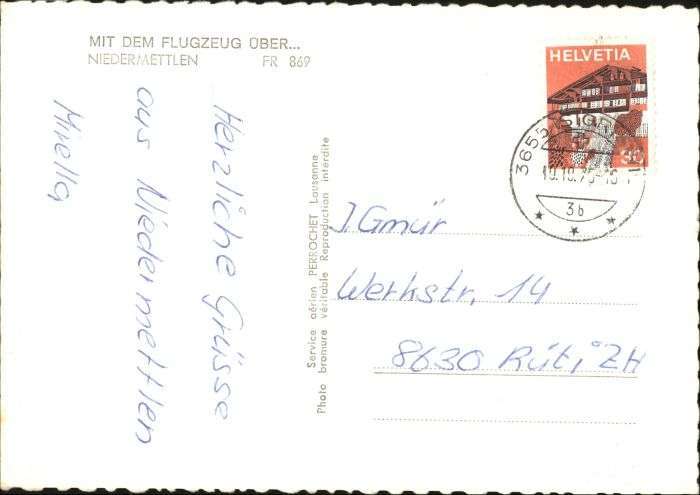 MIT DEM FLUGZEUG ÜBER...
NIEDERMETTLEN FR 869
Herzliche Grüsse
aus Niedermettlen
Mirella
Service aérien PERROCHET Lausanne
Photo bromure véritable Reproduction interdite
HELVETIA
30
3655
3b
J. Gmür
Werkstr. 14
8630 Rüti ZH